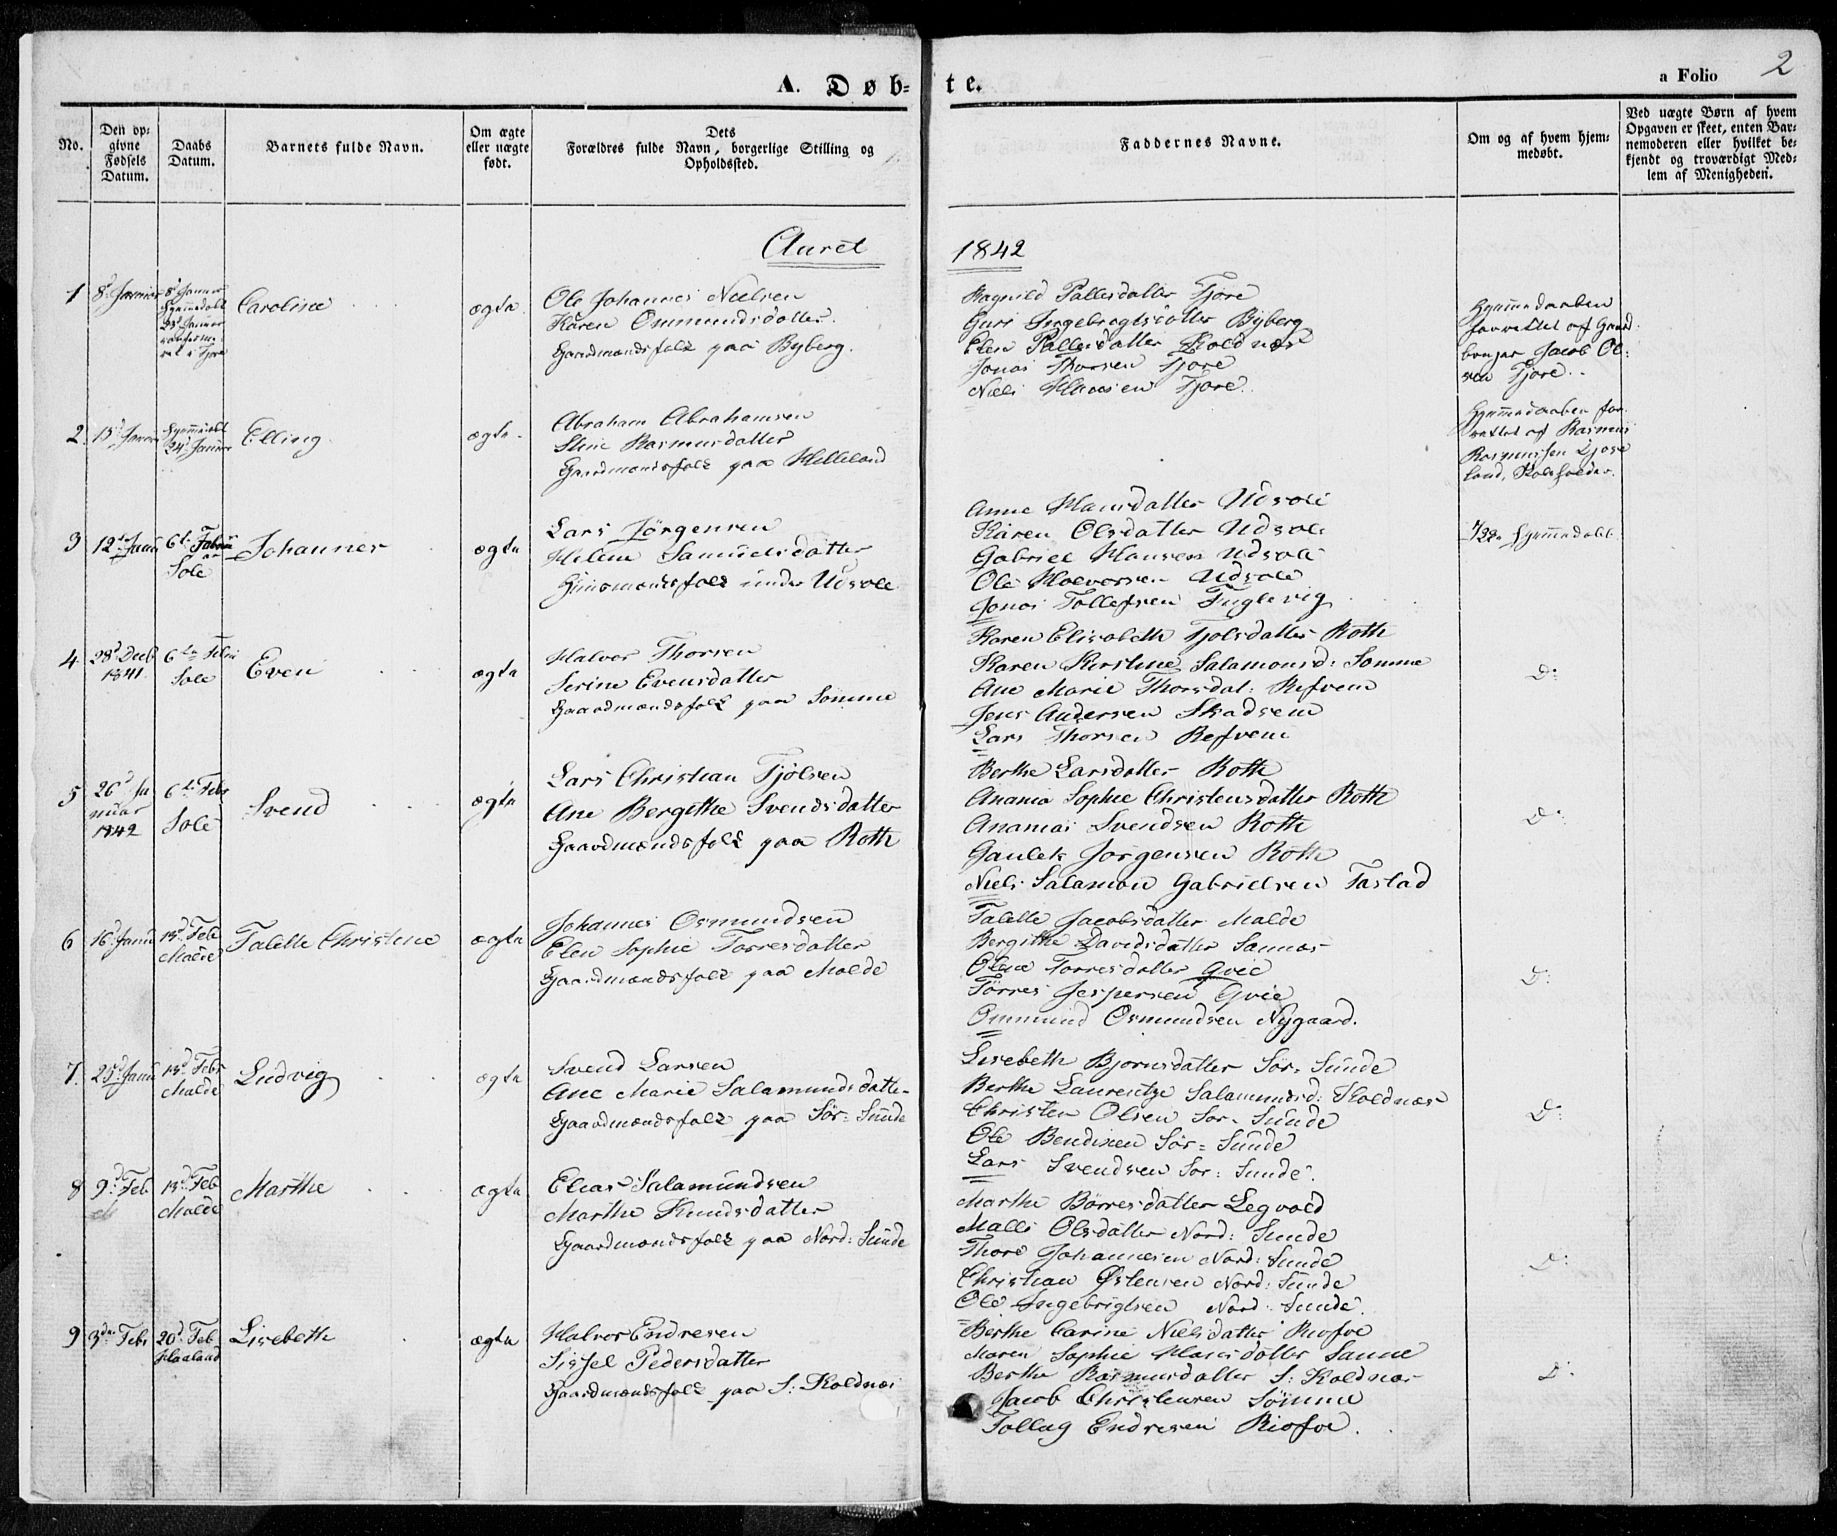 A. Døb-
te.
a Folio 2
No.
Den op-
givne
Fødsels
Datum.
Daabs
Datum.
Barnets fulde Navn.
Om ægte
eller uægte
født.
Dets
Forældres fulde Navn, borgerlige Stilling og
Opholdssted.
Faddernes Navne.
Om og af hvem hjem-
medøbt.
Ved uægte Børn af hvem
Opgaven er skeet, enten Bar-
nemoderen eller hvilket be-
kjendt og troværdigt Med-
lem af Menigheden.
Aaret
1842
1
8d Januar
8d Januar
Hjemmedøbt
23d Januar
Caroline
ægte
Ole Johannes Nielsen
Karen Ommundsdatter
Gaardmandsfolk paa Byberg.
Ragnild Pallesdatter Tjore
Guri Ingebregtsdatter Byberg
Elen Pallesdatter Koldnæs
Jonas Thorsen Tjore
Niels Hansen Tjore.
Hjemmedaaben
forrettet af Gaard-
bruger Jacob Ol-
sen Tjore.
2
15d Januar
Hjemmedøbt
24d Januar
Elling
ægte
Abraham Abrahamsen
Stine Rasmusdatter
Gaardmandsfolk paa Helleland
Hjemmedaaben for-
rettet af Rasmus
Rasmussen
land, Skoleholder.
3
12te Janu
6te Februar
Sole
Johannes
ægte
Lars Jørgensen
Helene Samuelsdatter
Huusmandsfolk under Udsole
Anne Hansdatter Udsole
Karen Olsdatter Udsole
Gabriel Hansen Udsole
Ole Halvorsen Udsole
Jonas Tollefsen Fuglevig
Hjemmedøbt
4
28d Decb
1841.
6te Febr
Sole
Even
ægte
Halvor Thorsen
Serine Evensdatter
Gaardmandsfolk paa Sømme
Karen Elisabeth Tjølsdatter Roth
Karen Kirstine Salamonsd: Sømme
Ane Marie Thorsdat: Refvem
Jens Andersen Skadsem
Lars Thorsen Refvem
D:
5
26d Ja
nuar
1842
6te Febr
Sole
Svend
ægte
Lars Christian Tjølsen
Ane Bergithe Svendsdatter
Gaardmændsfolk paa Roth
Berthe Larsdatter Roth
Anania Sophie Christensdatter Roth
Ananias Svendsen Roth
Gauleh Jørgensen Roth
Niels Salamon Gabrielsen Tastad
D:
6
16d Janu
13d Feb
Malde
Talette Christine
ægte
Johannes Osmundsen
Elen Sophie Torresdatter
Gaardmændsfolk paa Malde
Talette Jacobsdatter Malde
Bergithe Davidsdatter Sannæs
Olene Torresdatter Qvie
Tørres Jespersen Qvie
Ommund Osmundsen Nygaard.
D:
7.
25d Janu
13d Febr
Malde
Ludvig
ægte
Svend Larsen
Ane Marie Salamundsdatte-
Gaardmændsfolk paa Sør-Sunde
Lisebeth Bjornsdatter Sør-Sunde
Berthe Laurentze Salamundsd: Koldnæs
Christen Olsen Sør-Sunde
Ole Bendixen Sør-Sunde
Lars Svendsen Sør-Sunde.
D:
8
9d Feb
13d Feb
Malde
Marthe
ægte
Elias Salamundsen
Marthe Knudsdatter
Gaardmændsfolk paa Nord: Sunde
Marthe Børresdatter Legvold
Malli Olsdatter Nord: Sunde
Thore Johannesen Nord: Sunde
Christian Østensen Nord: Sunde
Ole Ingebrigtsen Nord: Sunde.
D:
9
3die Febr
20d Feb
Haaland
Lisebeth
ægte
Halvor Endresen
Sissel Pedersdatter
Gaardmændsfolk paa S: Koldnæs
Berthe Carine Nielsdatter Risfoe
Maren Sophie Hansdatter Sanne
Berthe Rasmusdatter S: Koldnæs
Jacob Christensen Sømme
Tollag Endresen Risfoe.
D: